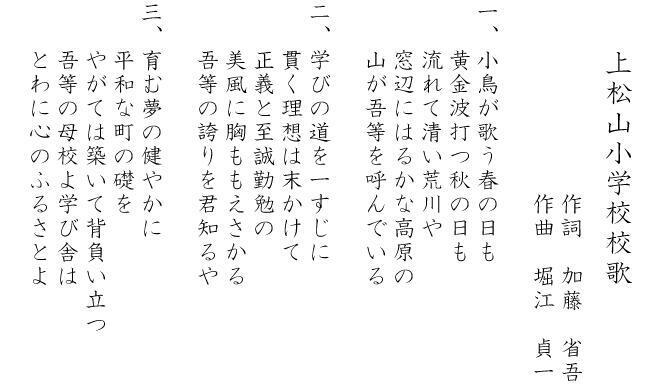 上松山小学校校歌
作詞　加藤　省吾
作曲　堀江　貞一
一、小鳥が歌う春の日も
黄金波打つ秋の日も
流れて清い荒川や
窓辺にはるかな高原の
山が吾等を呼んでいる
二、学びの道を一すじに
貫く理想は末かけて
正義と至誠勤勉の
美風に胸ももえさかる
吾等の誇りを君知るや
三、育む夢の健やかに
平和な町の礎を
やがては築いて背負い立つ
吾等の母校よ学び舎は
とわに心のふるさとよ